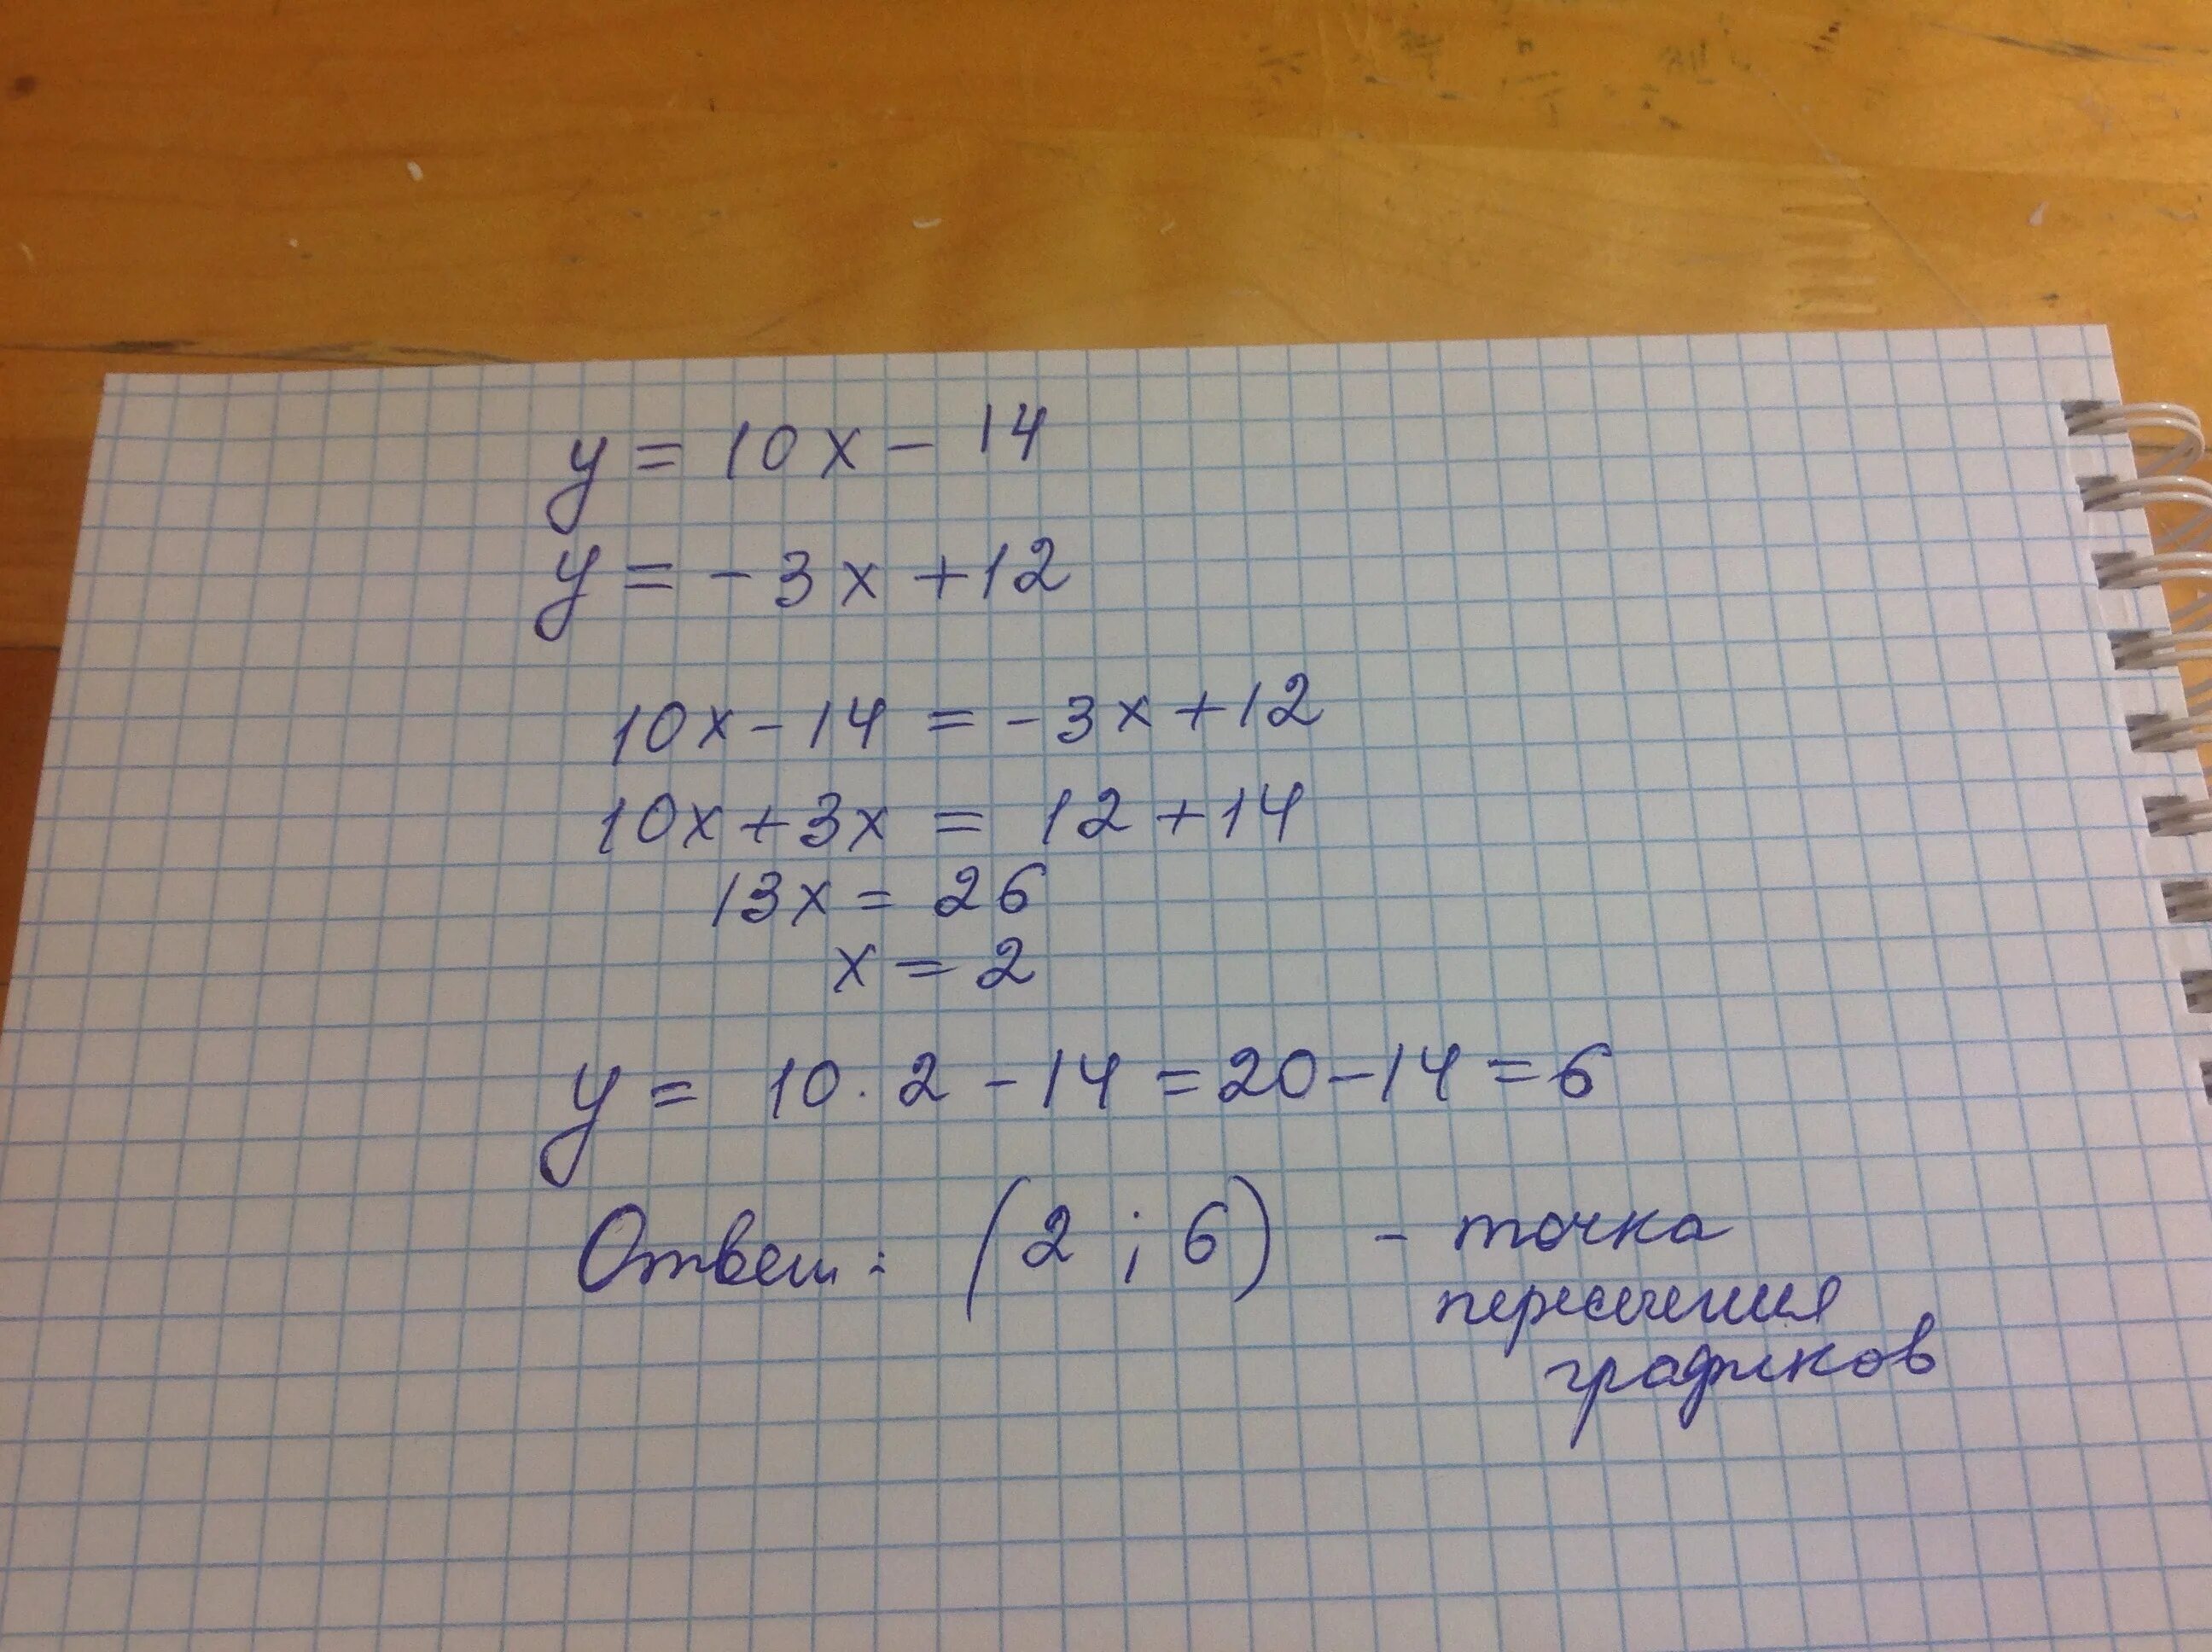 y = 10x - 14
y = -3x + 12
10x - 14 = -3x + 12
10x + 3x = 12 + 14
13x = 26
x = 2
y = 10 · 2 - 14 = 20 - 14 = 6
Ответ: (2 ; 6) - точка
пересечения
графиков